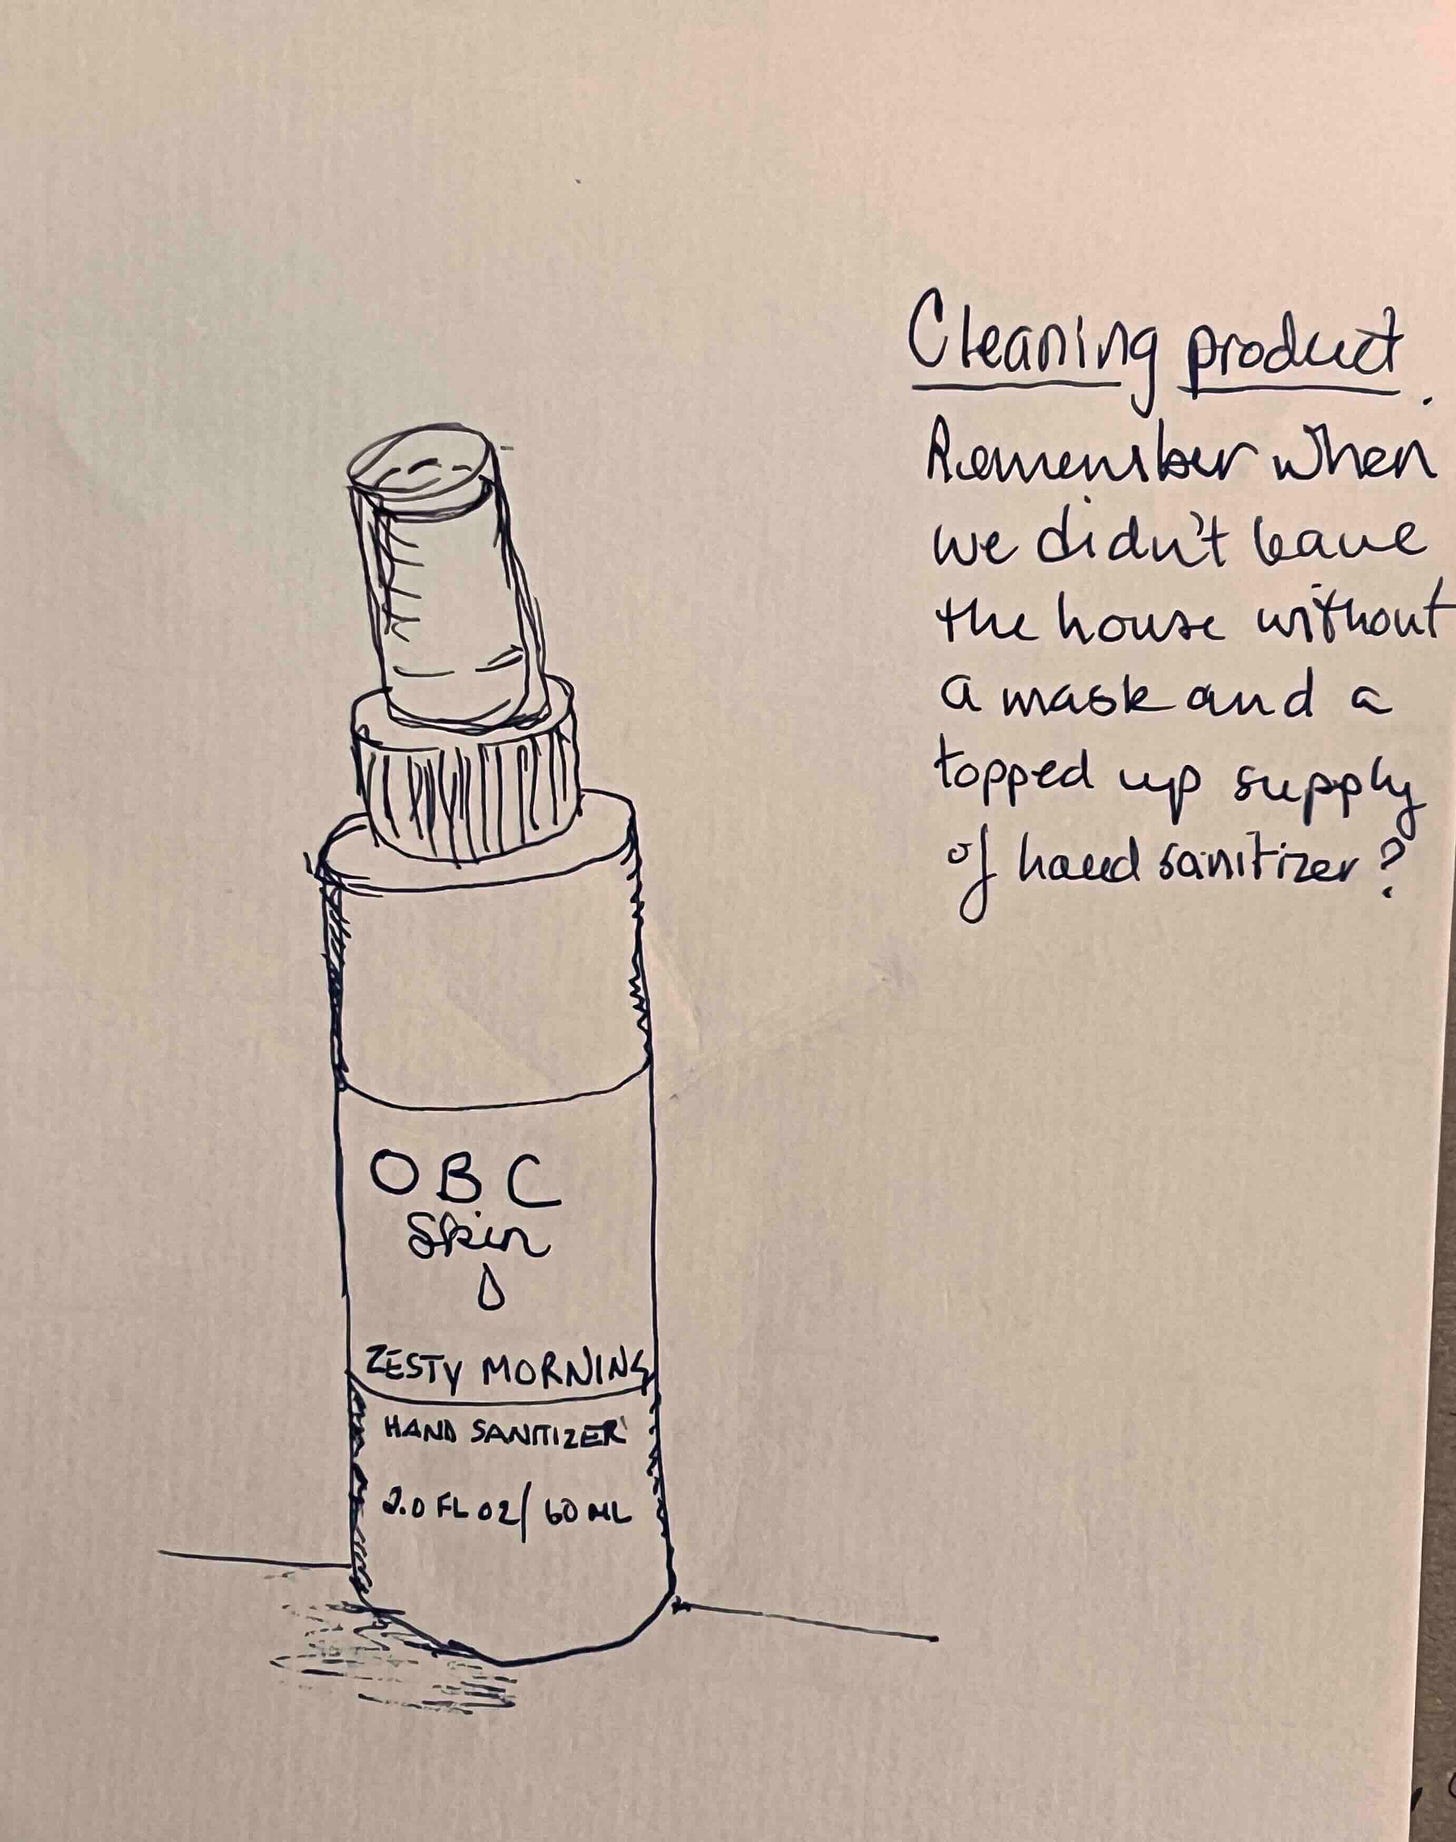 Cleaning product.
Remember when
we didn't leave
the house without
a mask and a
topped up supply
of hand sanitizer?
OBC
Skin
ZESTY MORNING
HAND SANITIZER
2.0 FL OZ/60 ML